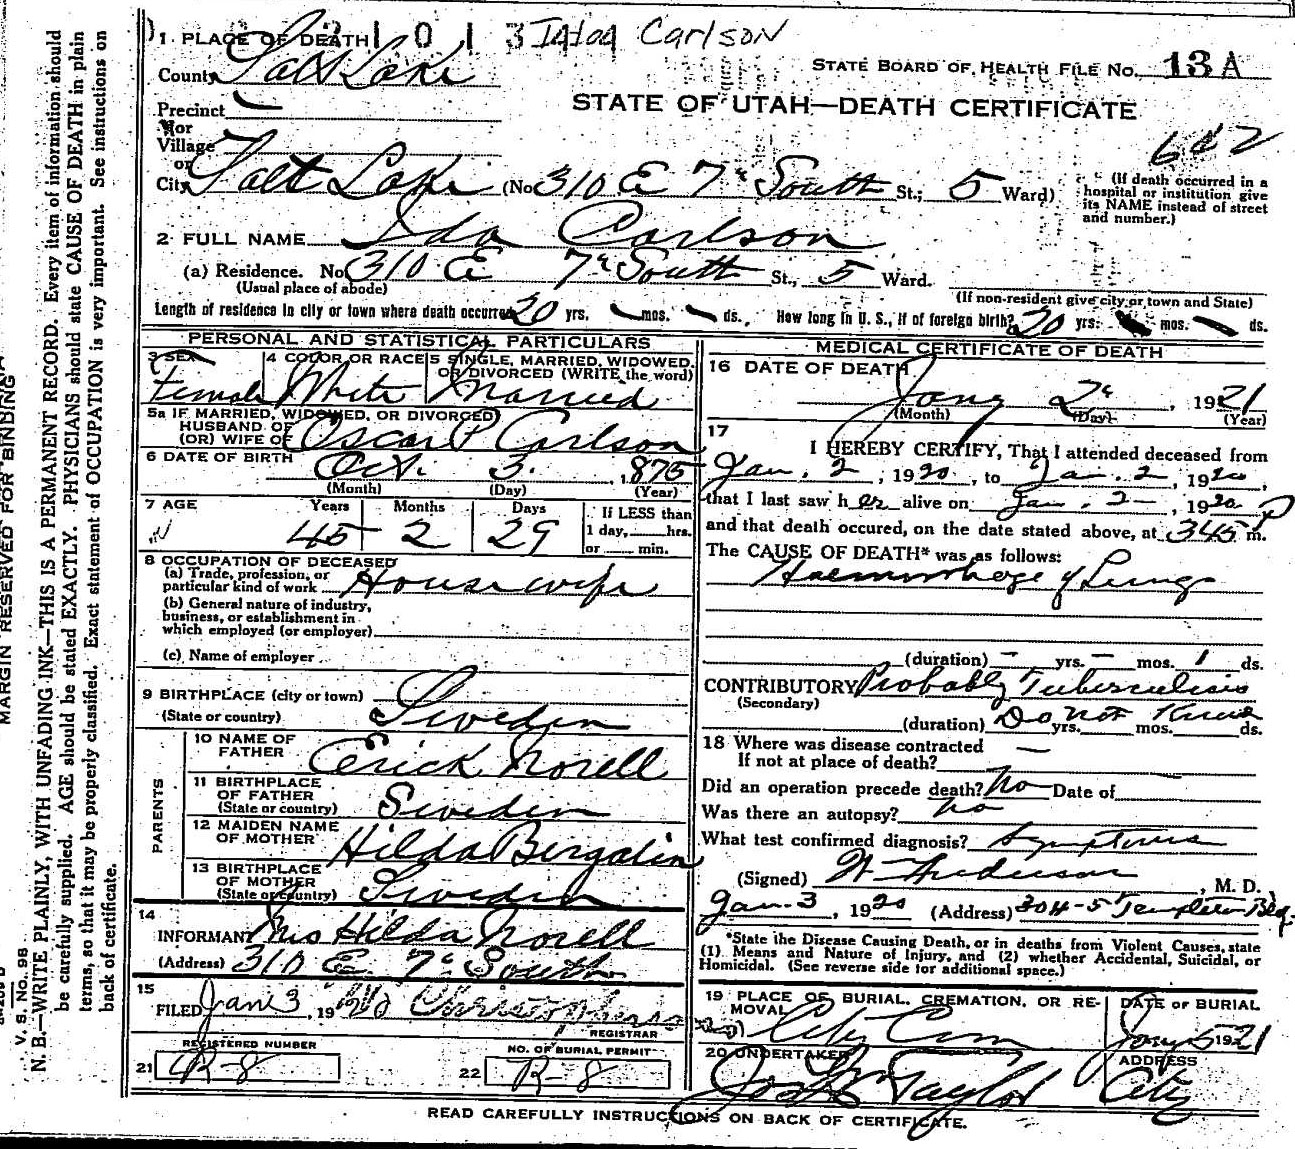 MARGIN RESERVED FOR BINDING
V. S. No. 98
N. B.—WRITE PLAINLY, WITH UNFADING INK—THIS IS A PERMANENT RECORD. Every item of information should
be carefully supplied. AGE should be stated EXACTLY. PHYSICIANS should state CAUSE OF DEATH in plain
terms, so that it may be properly classified. Exact statement of OCCUPATION is very important. See instructions on
back of certificate.
1 PLACE OF DEATH 2 1 0 1 3 Carlson
County Salt Lake
STATE BOARD OF HEALTH FILE No. 13 A
Precinct
STATE OF UTAH—DEATH CERTIFICATE
or
Village
or
City Salt Lake (No. 310 E 7" South St.; 5 Ward)
(If death occurred in a
hospital or institution give
its NAME instead of street
and number.)
2 FULL NAME Ida Carlson
(a) Residence. No. 310 E 7" South St., 5 Ward.
(Usual place of abode)
(If non-resident give city or town and State)
Length of residence in city or town where death occurred 20 yrs. — mos. — ds. How long in U. S., if of foreign birth? 20 yrs. — mos. — ds.
PERSONAL AND STATISTICAL PARTICULARS
3 SEX
Female
4 COLOR OR RACE
White
5 SINGLE, MARRIED, WIDOWED,
OR DIVORCED (WRITE the word)
Married
5a IF MARRIED, WIDOWED, OR DIVORCED
HUSBAND OF
(OR) WIFE OF Oscar P Carlson
6 DATE OF BIRTH Oct. 3. 1875
(Month) (Day) (Year)
7 AGE Years Months Days If LESS than
45 2 29 1 day, hrs.
or min.
8 OCCUPATION OF DECEASED
(a) Trade, profession, or
particular kind of work Housewife
(b) General nature of industry,
business, or establishment in
which employed (or employer)
(c) Name of employer
9 BIRTHPLACE (city or town)
(State or country) Sweden
PARENTS
10 NAME OF
FATHER Erick Norell
11 BIRTHPLACE
OF FATHER
(State or country) Sweden
12 MAIDEN NAME
OF MOTHER Hilda Bergalin
13 BIRTHPLACE
OF MOTHER
(State or country) Sweden
14
INFORMANT Mrs Hilda Norell
(Address) 310 E. 7" South
15
FILED Jan 3, 19
REGISTRAR
REGISTERED NUMBER
21 R-8
NO. OF BURIAL PERMIT
22 R-8
MEDICAL CERTIFICATE OF DEATH
16 DATE OF DEATH
Jany 2", 1921
(Month) (Day) (Year)
17
I HEREBY CERTIFY, That I attended deceased from
Jan. 2, 1920, to Jan. 2, 1920,
that I last saw her alive on Jan. 2—, 1920
and that death occured, on the date stated above, at 345 P m.
The CAUSE OF DEATH* was as follows:
Haemorrhage of Lungs
(duration) — yrs. — mos. 1 ds.
CONTRIBUTORY Probably Tuberculisis
(Secondary)
(duration) Do not Know yrs. mos. ds.
18 Where was disease contracted
If not at place of death? —
Did an operation precede death? No Date of
Was there an autopsy? No
What test confirmed diagnosis? Symptoms
(Signed) , M. D.
Jan. 3, 1920 (Address) 304-5 Templeton Bld.
*State the Disease Causing Death, or in deaths from Violent Causes, state
(1) Means and Nature of Injury, and (2) whether Accidental, Suicidal, or
Homicidal. (See reverse side for additional space.)
19 PLACE OF BURIAL, CREMATION, OR RE-
MOVAL
City Cem
DATE OF BURIAL
Jany 5 1921
20 UNDERTAKER
Jos Wm Taylor
ADDRESS
City
READ CAREFULLY INSTRUCTIONS ON BACK OF CERTIFICATE.